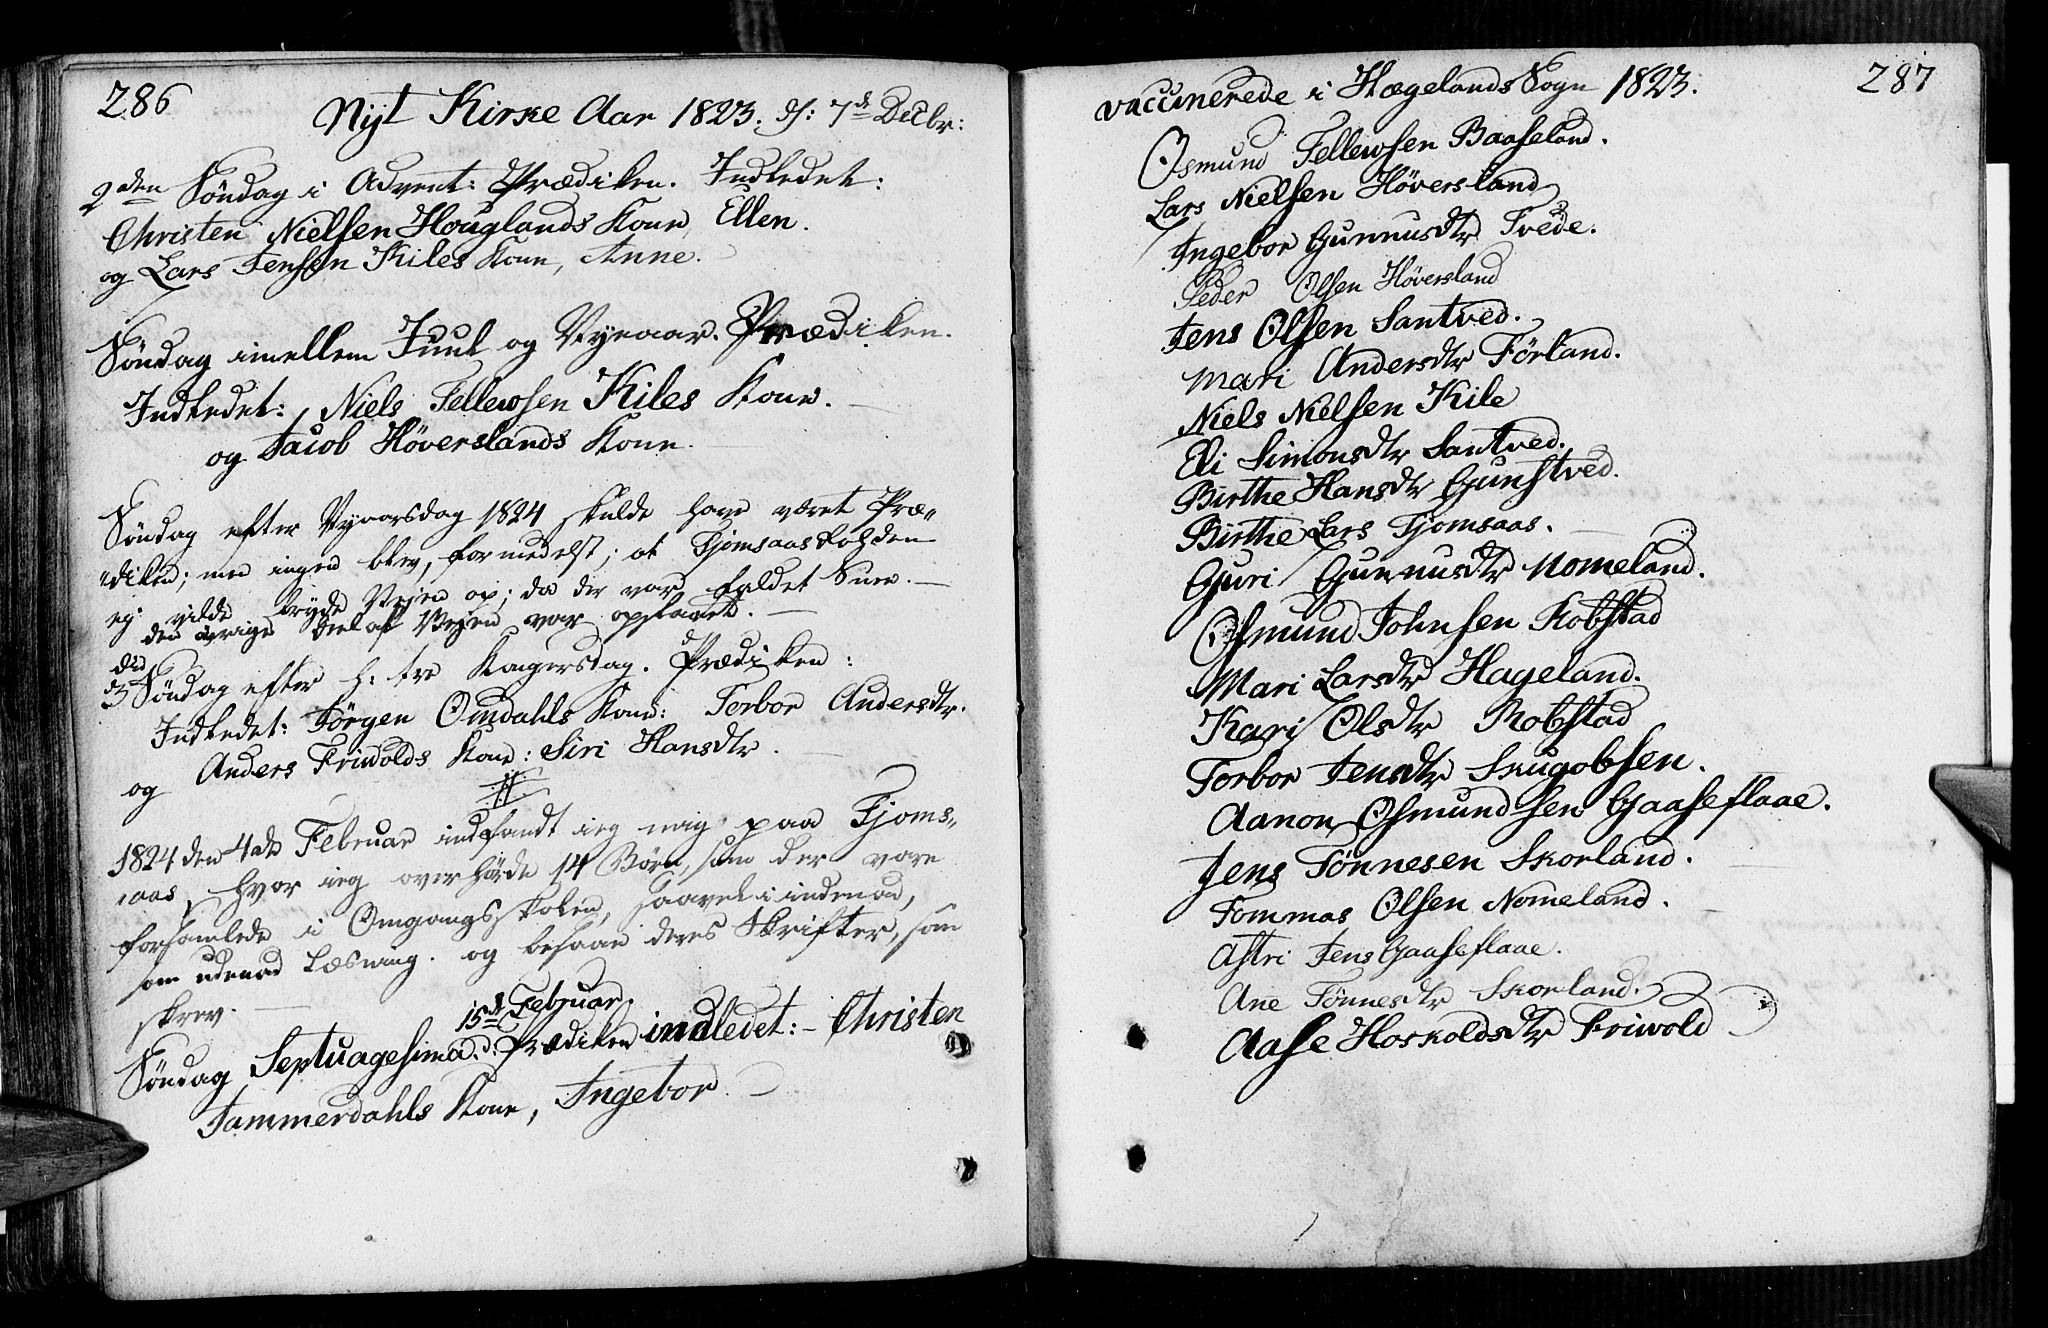 286
Nyt Kirke Aar 1823. d: 7de Decbr:
2den Søndag i Advent: Prædiken. Indledet:
Christen Nielsen Houglands Kone, Ellen.
og Lars Jensen Kiles Kone, Anne.
Søndag imellem Juul og Nyeaar. Prædiken.
Indledet: Niels Tellewsen Kiles Kone.
og Jacob Höverslands Kone.
Søndag efter Nyaarsdag 1824 skulde have været Præ„
„diken; men ingen blev, formedelst, at Tjomsaas
ej vilde bryde Vejen op; da der var faldet Snee. —
den øvrige Deel af Vejen var opkaaret. —
Søndag efter H: tre Kongersdag. Prædiken:
Indledet: Jörgen Omdahls Kone: Torbor Andersdtr.
og Anders Friwolds Kone: Siri Hansdtr. —
1824 den 4de Februar indfandt jeg mig paa Tjoms„
„aas, hvor jeg overhørde 14 Børn, som der vare
forsamlede i Omgangsskolen, saavel i indenad,
som udenad Læsning. og besaae deres Skrifter, som
skrev. —
15de Februar
Søndag Septuagesima. Prædiken indledet: - Christen
Jammerdahls Kone, Ingebor. —
287
vaccinerede i Hægelands Sogn 1823.
Osmund Tellewsen Baaseland.
Lars Nielsen Höversland
Ingebor Gunnusdtr Tvede.
Peder Olsen Höversland
Jens Olsen Santved.
Mari Andersdtr Förland.
Niels Nielsen Kile
Eli Simonsdtr Santved.
Birthe Hansdtr Gunstved.
Birthe Lars Tjomsaas.
Guri Gunnusdtr Nomeland.
Osmund Johnsen Robstad
Mari Larsdtr Hageland.
Kari Olsdtr Robstad
Torbor Jensdtr Skugobsen.
Aanon Osmundsen Gaaseflaae.
Jens Tönnesen Skorland.
Tommas Olsen Nomeland.
Astri Jens Gaaseflaae.
Ane Tönnesdtr Skorland.
Aase Horskoldsdtr Friwold